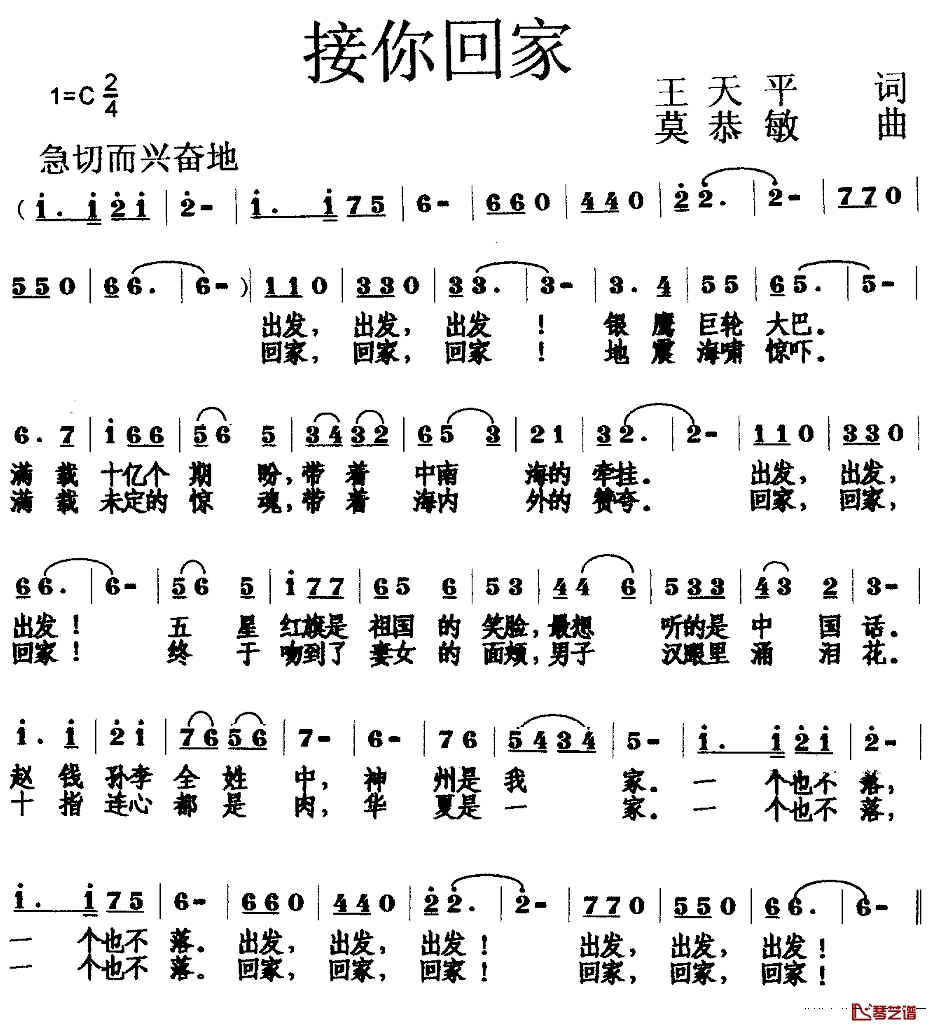 接你回家
1=C 2/4
王天平 词
莫恭敏 曲
急切而兴奋地
( i. i 2 i | 2 - | i. i 7 5 | 6 - | 6 6 0 | 4 4 0 | 2 2. | 2 - | 7 7 0 |
5 5 0 | 6 6. | 6 - ) | 1 1 0 | 3 3 0 | 3 3. | 3 - | 3. 4 | 5 5 | 6 5. | 5 - |
出发, 出发, 出发 ! 银 鹰 巨轮 大巴.
回家, 回家, 回家 ! 地 震 海啸 惊吓.
6. 7 | i 6 6 | 5 6 5 | 3 4 3 2 | 6 5 3 | 2 1 | 3 2. | 2 - | 1 1 0 | 3 3 0 |
满 载 十亿个 期 盼, 带 着 中南 海的 牵挂. 出发, 出发,
满 载 未定的 惊 魂, 带 着 海内 外的 赞夸. 回家, 回家,
6 6. | 6 - | 5 6 5 | i 7 7 | 6 5 6 | 5 3 | 4 4 6 | 5 3 3 | 4 3 2 | 3 - |
出发! 五 星 红旗是 祖国 的 笑脸, 最想 听的是 中 国 话.
回家! 终 于 吻到了 妻女 的 面颊, 男子 汉眼里 涌 泪 花.
i. i | 2 i | 7 6 5 6 | 7 - | 6 - | 7 6 | 5 4 3 4 | 5 - | i. i 2 i | 2 - |
赵 钱 孙李 全 姓 中, 神 州是 我 家. 一 个也不 落,
十 指 连心 都 是 肉, 华 夏是 一 家. 一 个也不 落,
i. i 7 5 | 6 - | 6 6 0 | 4 4 0 | 2 2. | 2 - | 7 7 0 | 5 5 0 | 6 6. | 6 - ‖
一 个也不 落. 出发, 出发, 出发! 出发, 出发, 出发!
一 个也不 落. 回家, 回家, 回家! 回家, 回家, 回家!
琴艺谱